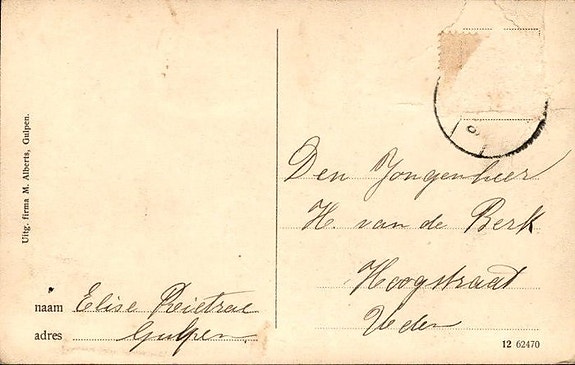 Uitg. firma M. Alberts, Gulpen.
Den Jongenheer
H. van de Berk
Hoogstraat
Veden
naam Elise
adres Gulpen.
12 62470